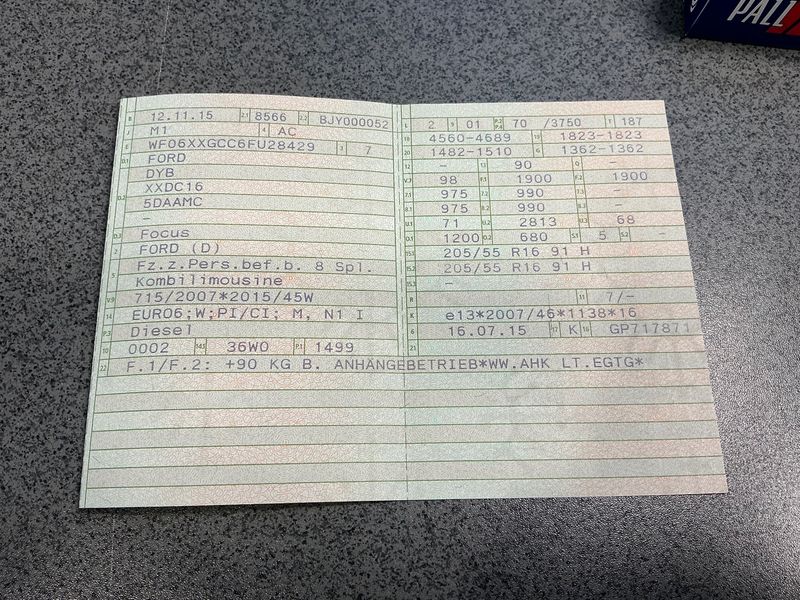 PALL
B 12.11.15 2.1 8566 2.2 BJY000052
J M1 4 AC
E WF06XXGCC6FU28429 3 7
D.1 FORD
DYB
D.2 XXDC16
5DAAMC
–
D.3 Focus
2 FORD (D)
5 Fz.z.Pers.bef.b. 8 Spl.
Kombilimousine
V.9 715/2007*2015/45W
14 EURO6;W;PI/CI; M, N1 I
P.3 Diesel
10 0002 14.1 36W0 P.1 1499
22 F.1/F.2: +90 KG B. ANHÄNGEBETRIEB*WW.AHK LT.EGTG*
L 2 9 01 P.2 P.4 70 /3750 T 187
18 4560-4689 19 1823-1823
20 1482-1510 G 1362-1362
12 – 13 90 Q –
V.7 98 F.1 1900 F.2 1900
7.1 975 7.2 990 7.3 –
8.1 975 8.2 990 8.3 –
U.1 71 U.2 2813 U.3 68
O.1 1200 O.2 680 S.1 5 S.2 –
15.1 205/55 R16 91 H
15.2 205/55 R16 91 H
15.3 –
R 11 7/–
K e13*2007/46*1138*16
6 16.07.15 17 K 16 GP717871
21